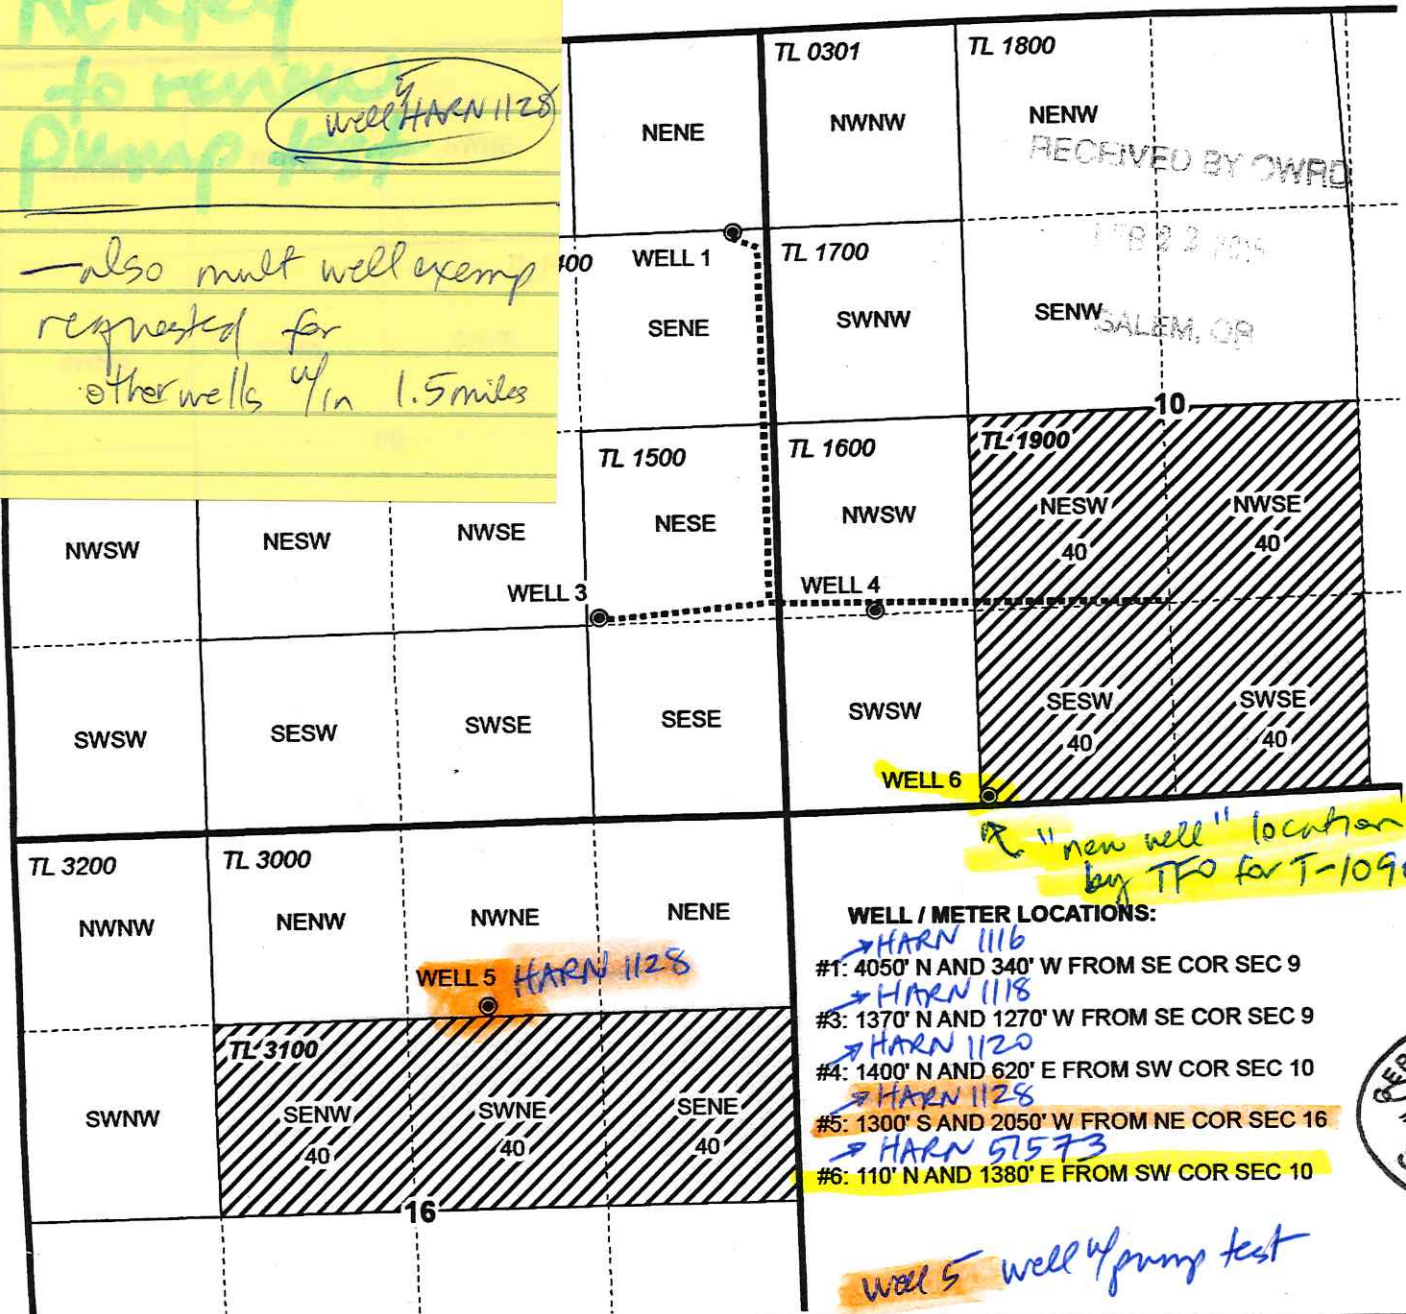 to review
pump test
well HARN 1128
—also mult well exemp
requested for
other wells w/in 1.5 miles
TL 0301
TL 1800
NENE
NWNW
NENW
RECEIVED BY OWRD
SALEM, OR
400
WELL 1
TL 1700
SENE
SWNW
SENW
10
TL 1500
TL 1600
TL 1900
NWSW
NESW
NWSE
NESE
NWSW
NESW
40
NWSE
40
WELL 3
WELL 4
SWSW
SESW
SWSE
SESE
SWSW
SESW
40
SWSE
40
WELL 6
"new well" location
by TFO for T-109
TL 3200
TL 3000
NWNW
NENW
NWNE
NENE
WELL 5 HARN 1128
TL 3100
SWNW
SENW
40
SWNE
40
SENE
40
16
WELL / METER LOCATIONS:
HARN 1116
#1: 4050' N AND 340' W FROM SE COR SEC 9
HARN 1118
#3: 1370' N AND 1270' W FROM SE COR SEC 9
HARN 1120
#4: 1400' N AND 620' E FROM SW COR SEC 10
HARN 1128
#5: 1300' S AND 2050' W FROM NE COR SEC 16
HARN 51573
#6: 110' N AND 1380' E FROM SW COR SEC 10
well 5 well w/pump test